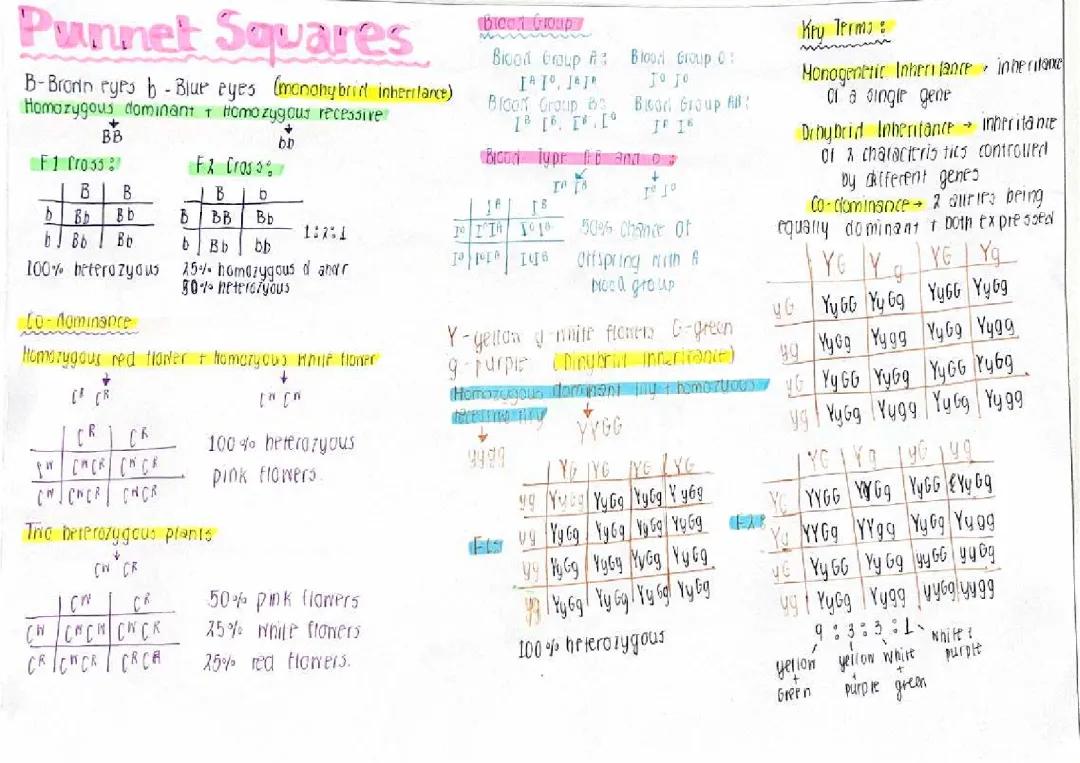 Punnet Squares
B-Brown eyes b - Blue eyes (monohybrid inheritance)
Homozygous dominant + Homozygous recessive
BB bb
F1 Cross: F2 Cross:
B B
b Bb Bb
b Bb Bb
B b
B BB Bb
b Bb bb
1:2:1
100% heterozygous
25% homozygous d and r
50% heterozyous
Co-dominance
Homozygous red flower + homozyous white flower
Cᴿ Cᴿ Cᵂ Cᵂ
Cᴿ Cᴿ
Cᵂ CᵂCᴿ CᵂCᴿ
Cᵂ CᵂCᴿ CᵂCᴿ
100% heterozyous
pink flowers.
Two heterozygous plants
Cᵂ Cᴿ
Cᵂ Cᴿ
Cᵂ CᵂCᵂ CᵂCᴿ
Cᴿ CᵂCᴿ CᴿCᴿ
50% pink flowers
25% white flowers
25% red flowers.
Blood Group
Blood Group A: Blood Group O:
Iᴬ Iᴼ, IᴬIᴬ Iᴼ Iᴼ
Blood Group B: Blood Group AB:
Iᴮ Iᴮ, Iᴮ, Iᴼ Iᴬ Iᴮ
Blood Type AB and O:
Iᴬ Iᴮ Iᴼ Iᴼ
Iᴬ Iᴮ
Iᴼ IᴼIᴬ IᴼIᴮ
Iᴼ IᴼIᴬ IᴼIᴮ
50% chance of
offspring with A
blood group
Y-yellow y-white flowers G-green
g-purple (Dihybrid inheritance)
Homozygous dominant lily + homozuous
recessive lily
YYGG
yygg
F1:
YG YG YG YG
yg YyGg YyGg YyGg YyGg
yg YyGg YyGg YyGg YyGg
yg YyGg YyGg YyGg YyGg
yg YyGg YyGg YyGg YyGg
100% heterozygous
Key Terms:
Monogenetic Inheritance → inheritance
of a single gene
Dihybrid Inheritance → inheritance
of 2 characteristics controlled
by different genes
Co-dominance → 2 alleles being
equally dominant + both expressed
YG Yg YG Yg
yG YyGG YyGg YyGG YyGg
yg YyGg Yygg YyGg Yygg
yG YyGG YyGg YyGG YyGg
yg YyGg Yygg YyGg Yygg
F2:
YG Yg yG yg
YG YYGG YYGg YyGG YyGg
Yg YYGg YYgg YyGg Yygg
yG YyGG YyGg yyGG yyGg
yg YyGg Yygg yyGg yygg
9:3:3:1
yellow + Green
yellow + purple
white + green
white + purple